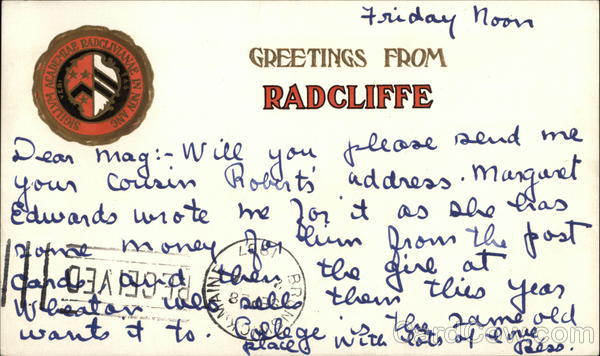 Friday Noon
SIGILLVM ACADEMIAE RADCLIVIANAE IN NOV ANG
GREETINGS FROM
RADCLIFFE
Dear Mag:- Will you please send me
your Cousin Robert's address. Margaret
Edwards wrote me for it as she has
some money for him from the post
cards and then the girl at
Wheaton who sells them this year
wants it to. College is the same old
place with lots of
RECEIVED
CardCow.com